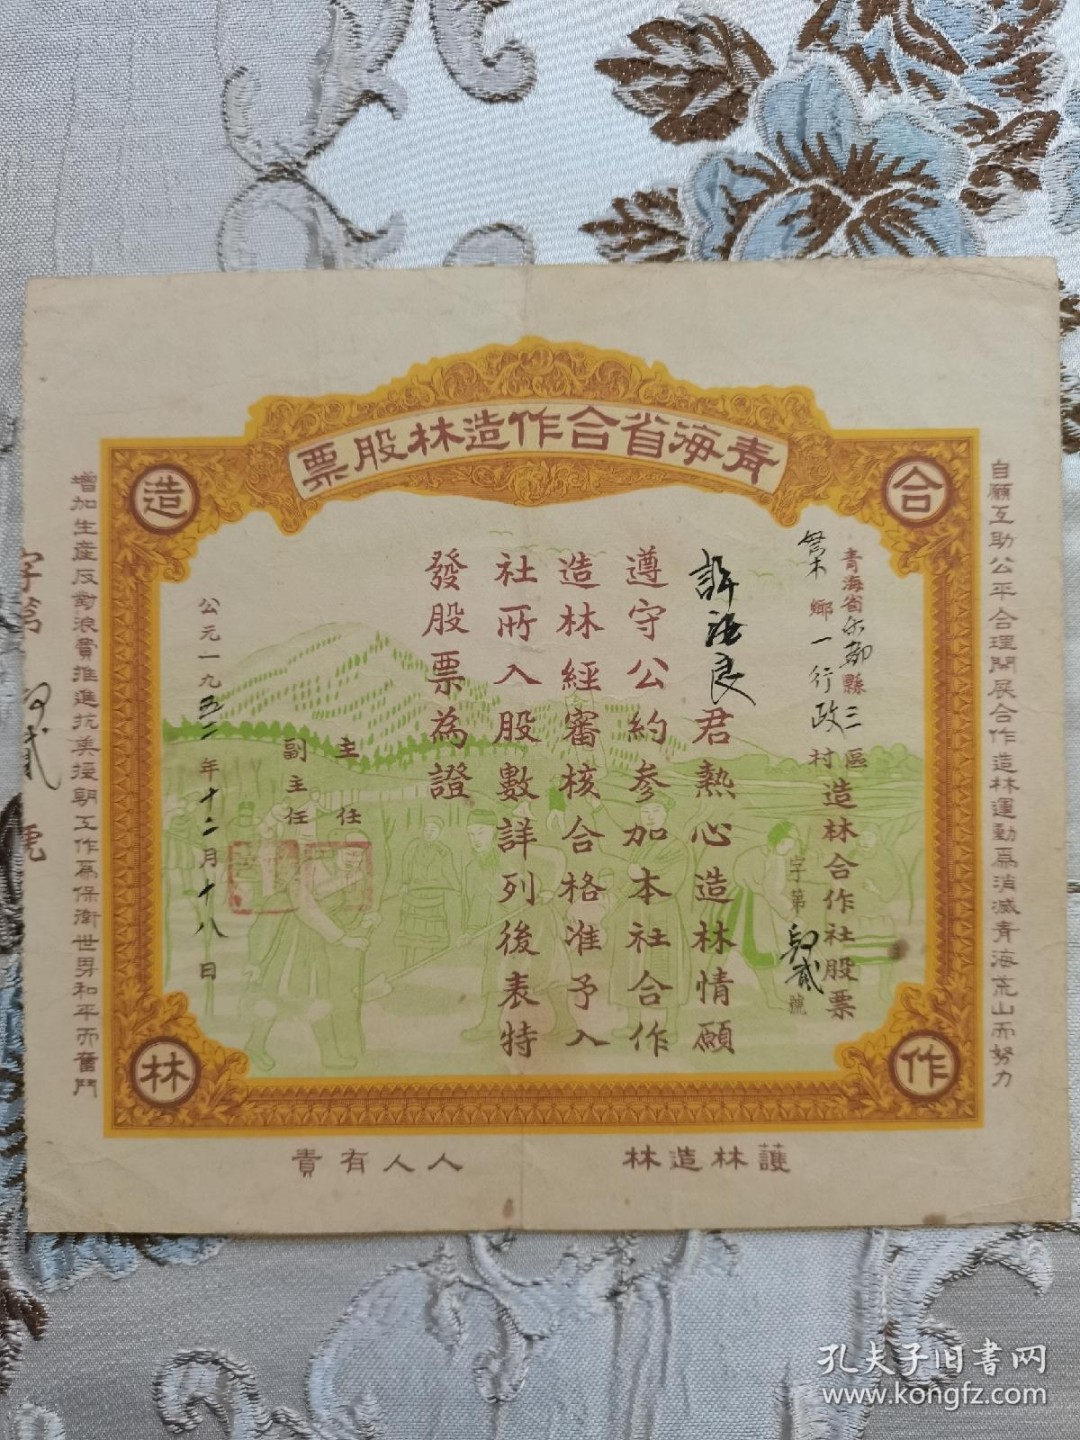 青海省合作造林股票
合
作
造
林
自願互助公平合理開展合作造林運動爲消滅青海荒山而努力
青海省乐都縣三區
鄉一行政村
造林合作社股票
字第 貳號
良君熱心造林情願
遵守公約參加本社合作
造林經審核合格准予入
社所入股數詳列後表特
發股票為證
主任
副主任
公元一九五二年十二月十八日
增加生產反對浪費推進抗美援朝工作爲保衛世界和平而奮鬥
字第 貳 號
護林造林
人人有責
孔夫子旧書网
www.kongfz.com